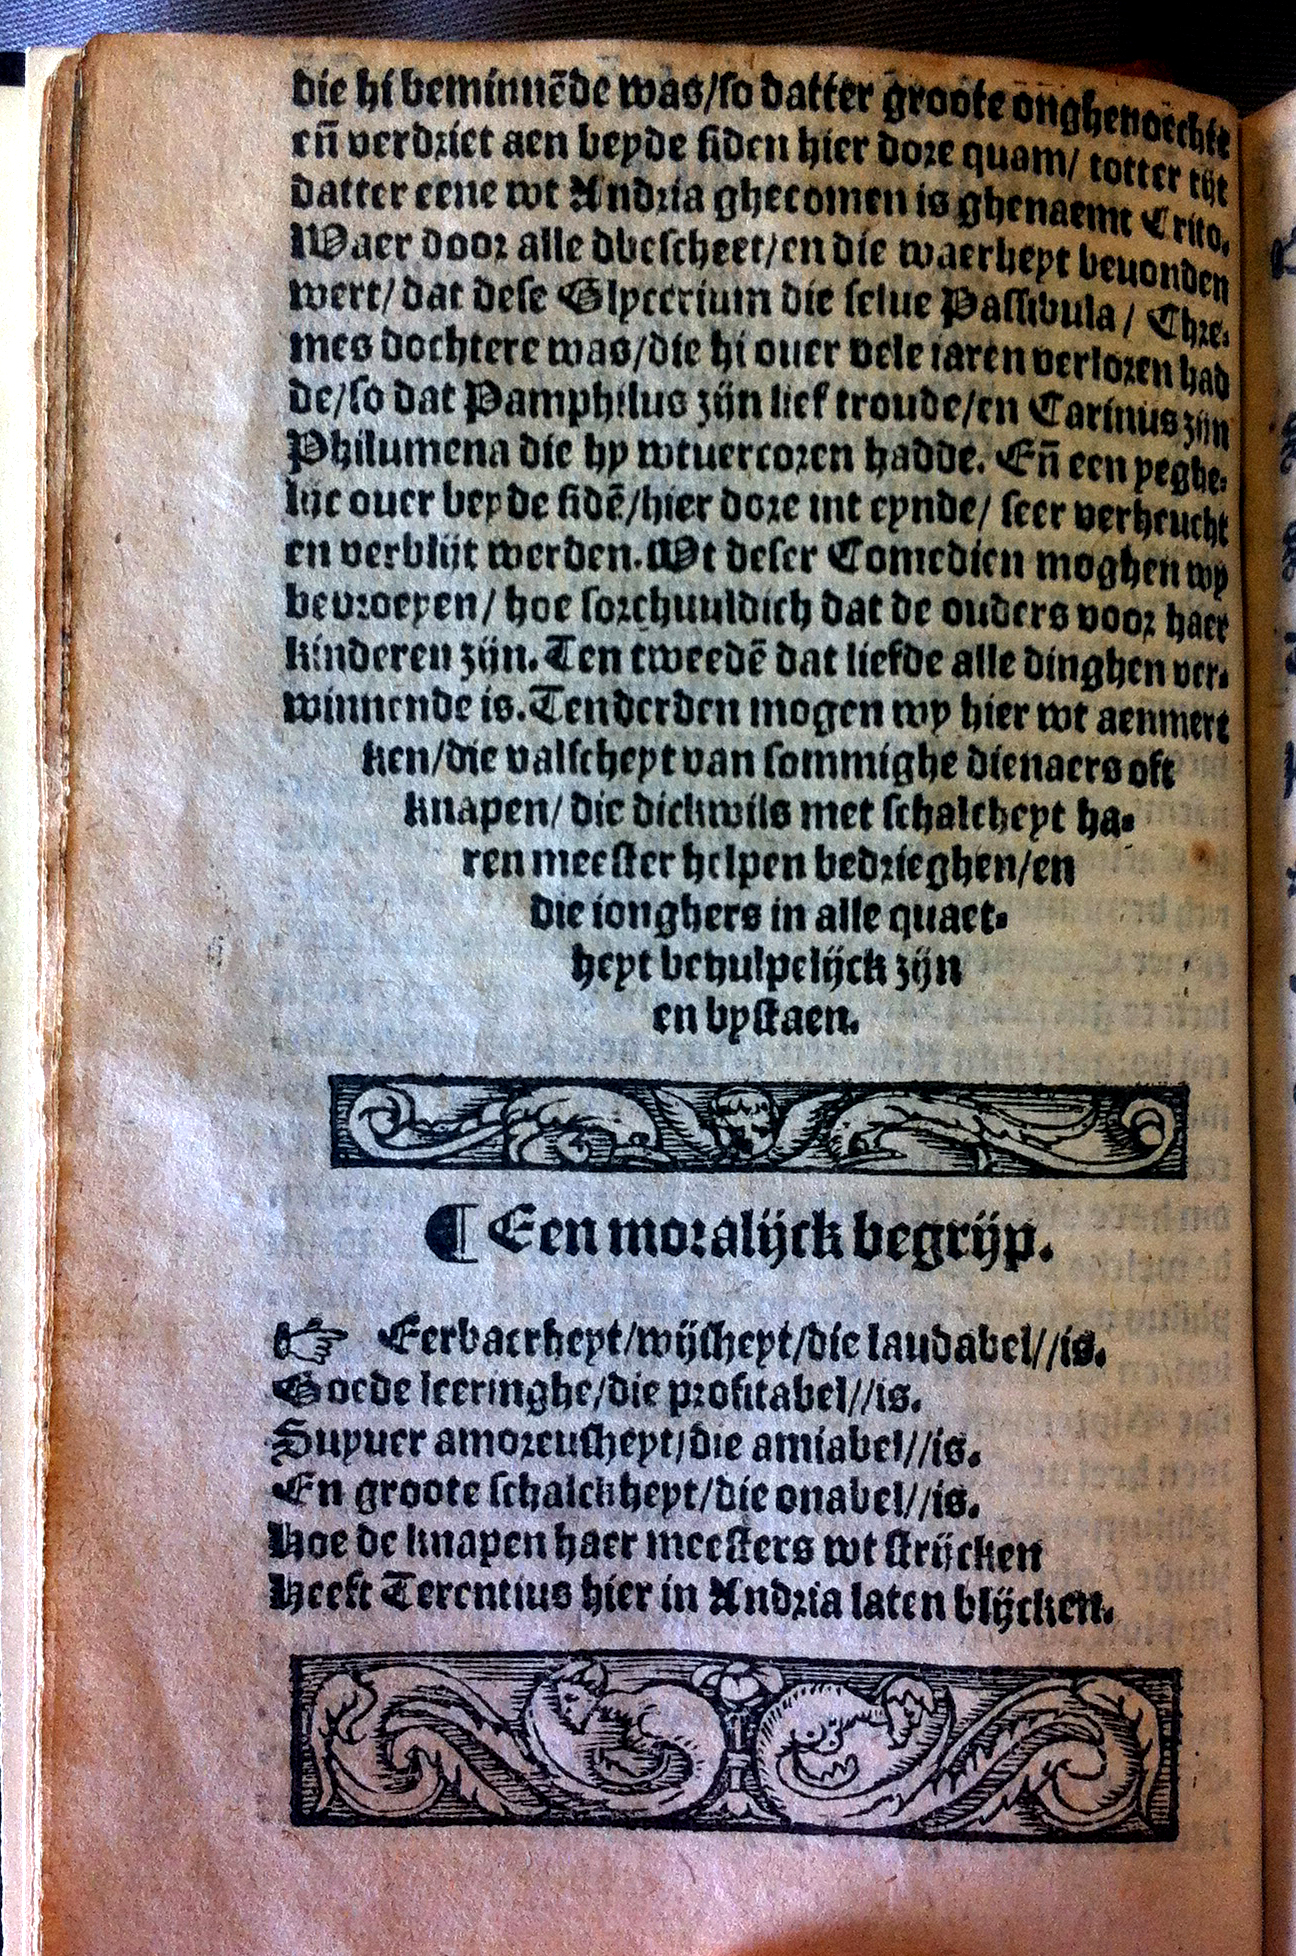 die hi beminnēde was/so datter groote onghenoechte
eñ verdriet aen beyde siden hier dore quam/ totter tijt
datter eene wt Andria ghecomen is ghenaemt Crito.
Waer door alle dbescheet/en die waerheyt beuonden
wert/dat dese Glycerium die selue Passibula/ Chre-
mes dochtere was/die hi ouer vele iaren verloren had
de/so dat Pamphilus zijn lief troude/en Carinus zijn
Philumena die hy wtuercoren hadde. Eñ een yeghe-
lijc ouer beyde sidē/hier dore int eynde/ seer verheucht
en verblijt werden. Wt deser Comedien moghen wy
bevroeyen/ hoe sorchuuldich dat de ouders voor haer
kinderen zijn. Ten tweedē dat liefde alle dinghen ver-
winnende is. Tenderden mogen wy hier wt aenmerc
ken/die valscheyt van sommighe dienaers oft
knapen/ die dickwils met schalcheyt ha-
ren meester helpen bedrieghen/en
die ionghers in alle quaet-
heyt behulpelijck zijn
en bystaen.
¶ Een moralijck begrijp.
☞ Eerbaerheyt/wijsheyt/die laudabel//is.
Goede leeringhe/die profitabel//is.
Suyuer amoreusheyt/die amiabel//is.
En groote schalckheyt/die onabel//is.
Hoe de knapen haer meesters wt strijcken
Heeft Terentius hier in Andria laten blijcken.